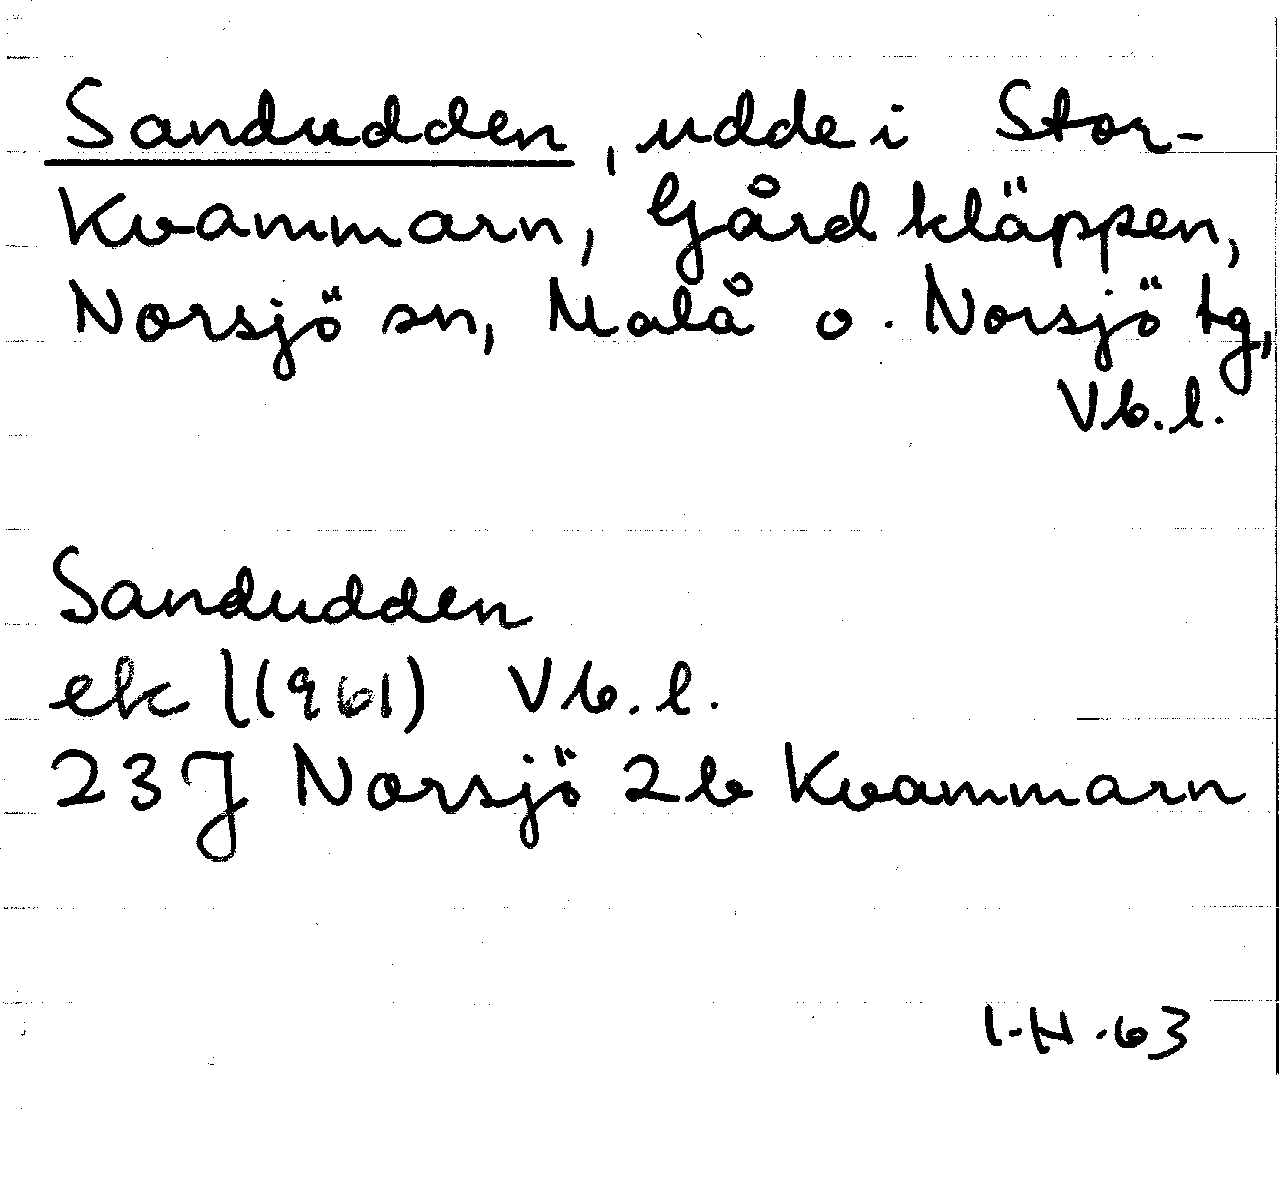 Sandudden, udde i Stor-
Kvammarn, Gårdkläppen,
Norsjö sn, Malå o. Norsjö tg,
Vb.l.
Sandudden
ek (1961) Vb.l.
23J Norsjö 2b Kvammarn
I.H.63